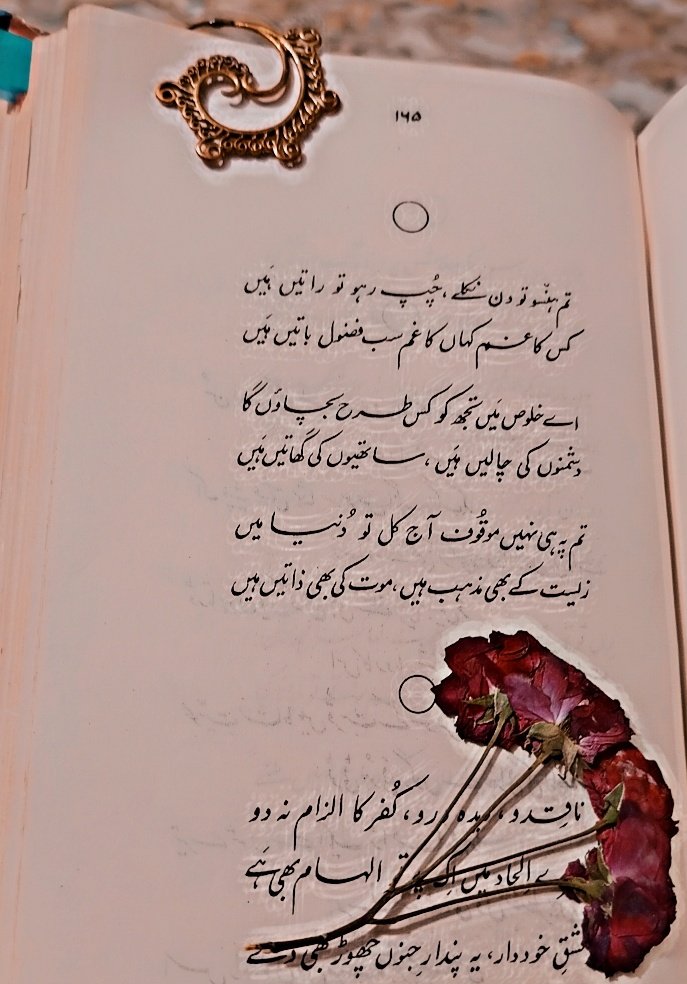 ۱۶۵
تم ہنسو تو دن نکلے، چُپ رہو تو راتیں ہَیں
کس کا غم کہاں کا غم سب فضول باتیں ہَیں
اے خلوص مَیں تجھ کو کس طرح بچاؤں گا
دشمنوں کی چالیں ہَیں، ساتھیوں کی گھاتیں ہَیں
تم پہ ہی نہیں موقُوف آج کل تو دُنیا میں
زیست کے بھی مذہب ہیں، موت کی بھی ذاتیں ہیں
ناقدو، دیدہ ورو، کُفر کا الزام نہ دو
اِلحاد میں اِک پر تو الہام بھی ہَے
عشقِ خوددار، یہ پندارِ جنوں چھوڑ بھی دے